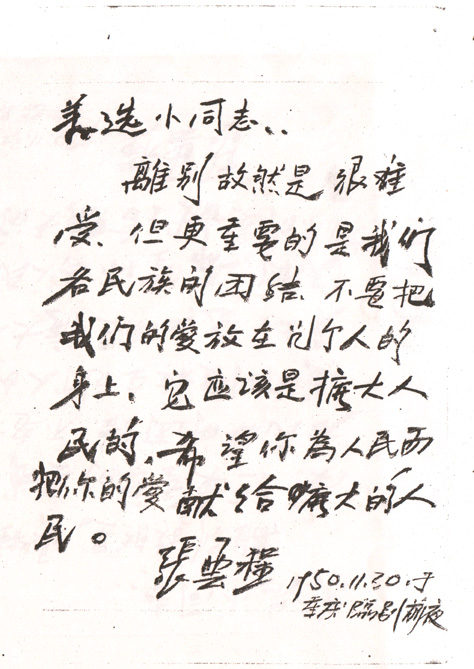 善选小同志..
離别故然是很难
受、但更重要的是我们
各民族的团结、不要把
我们的愛放在个人的
身上,它应该是擴大人
民的,希望你為人民而
把你的愛献给擴大的人
民。
張雲
1950.11.30.于
重庆临别前夜